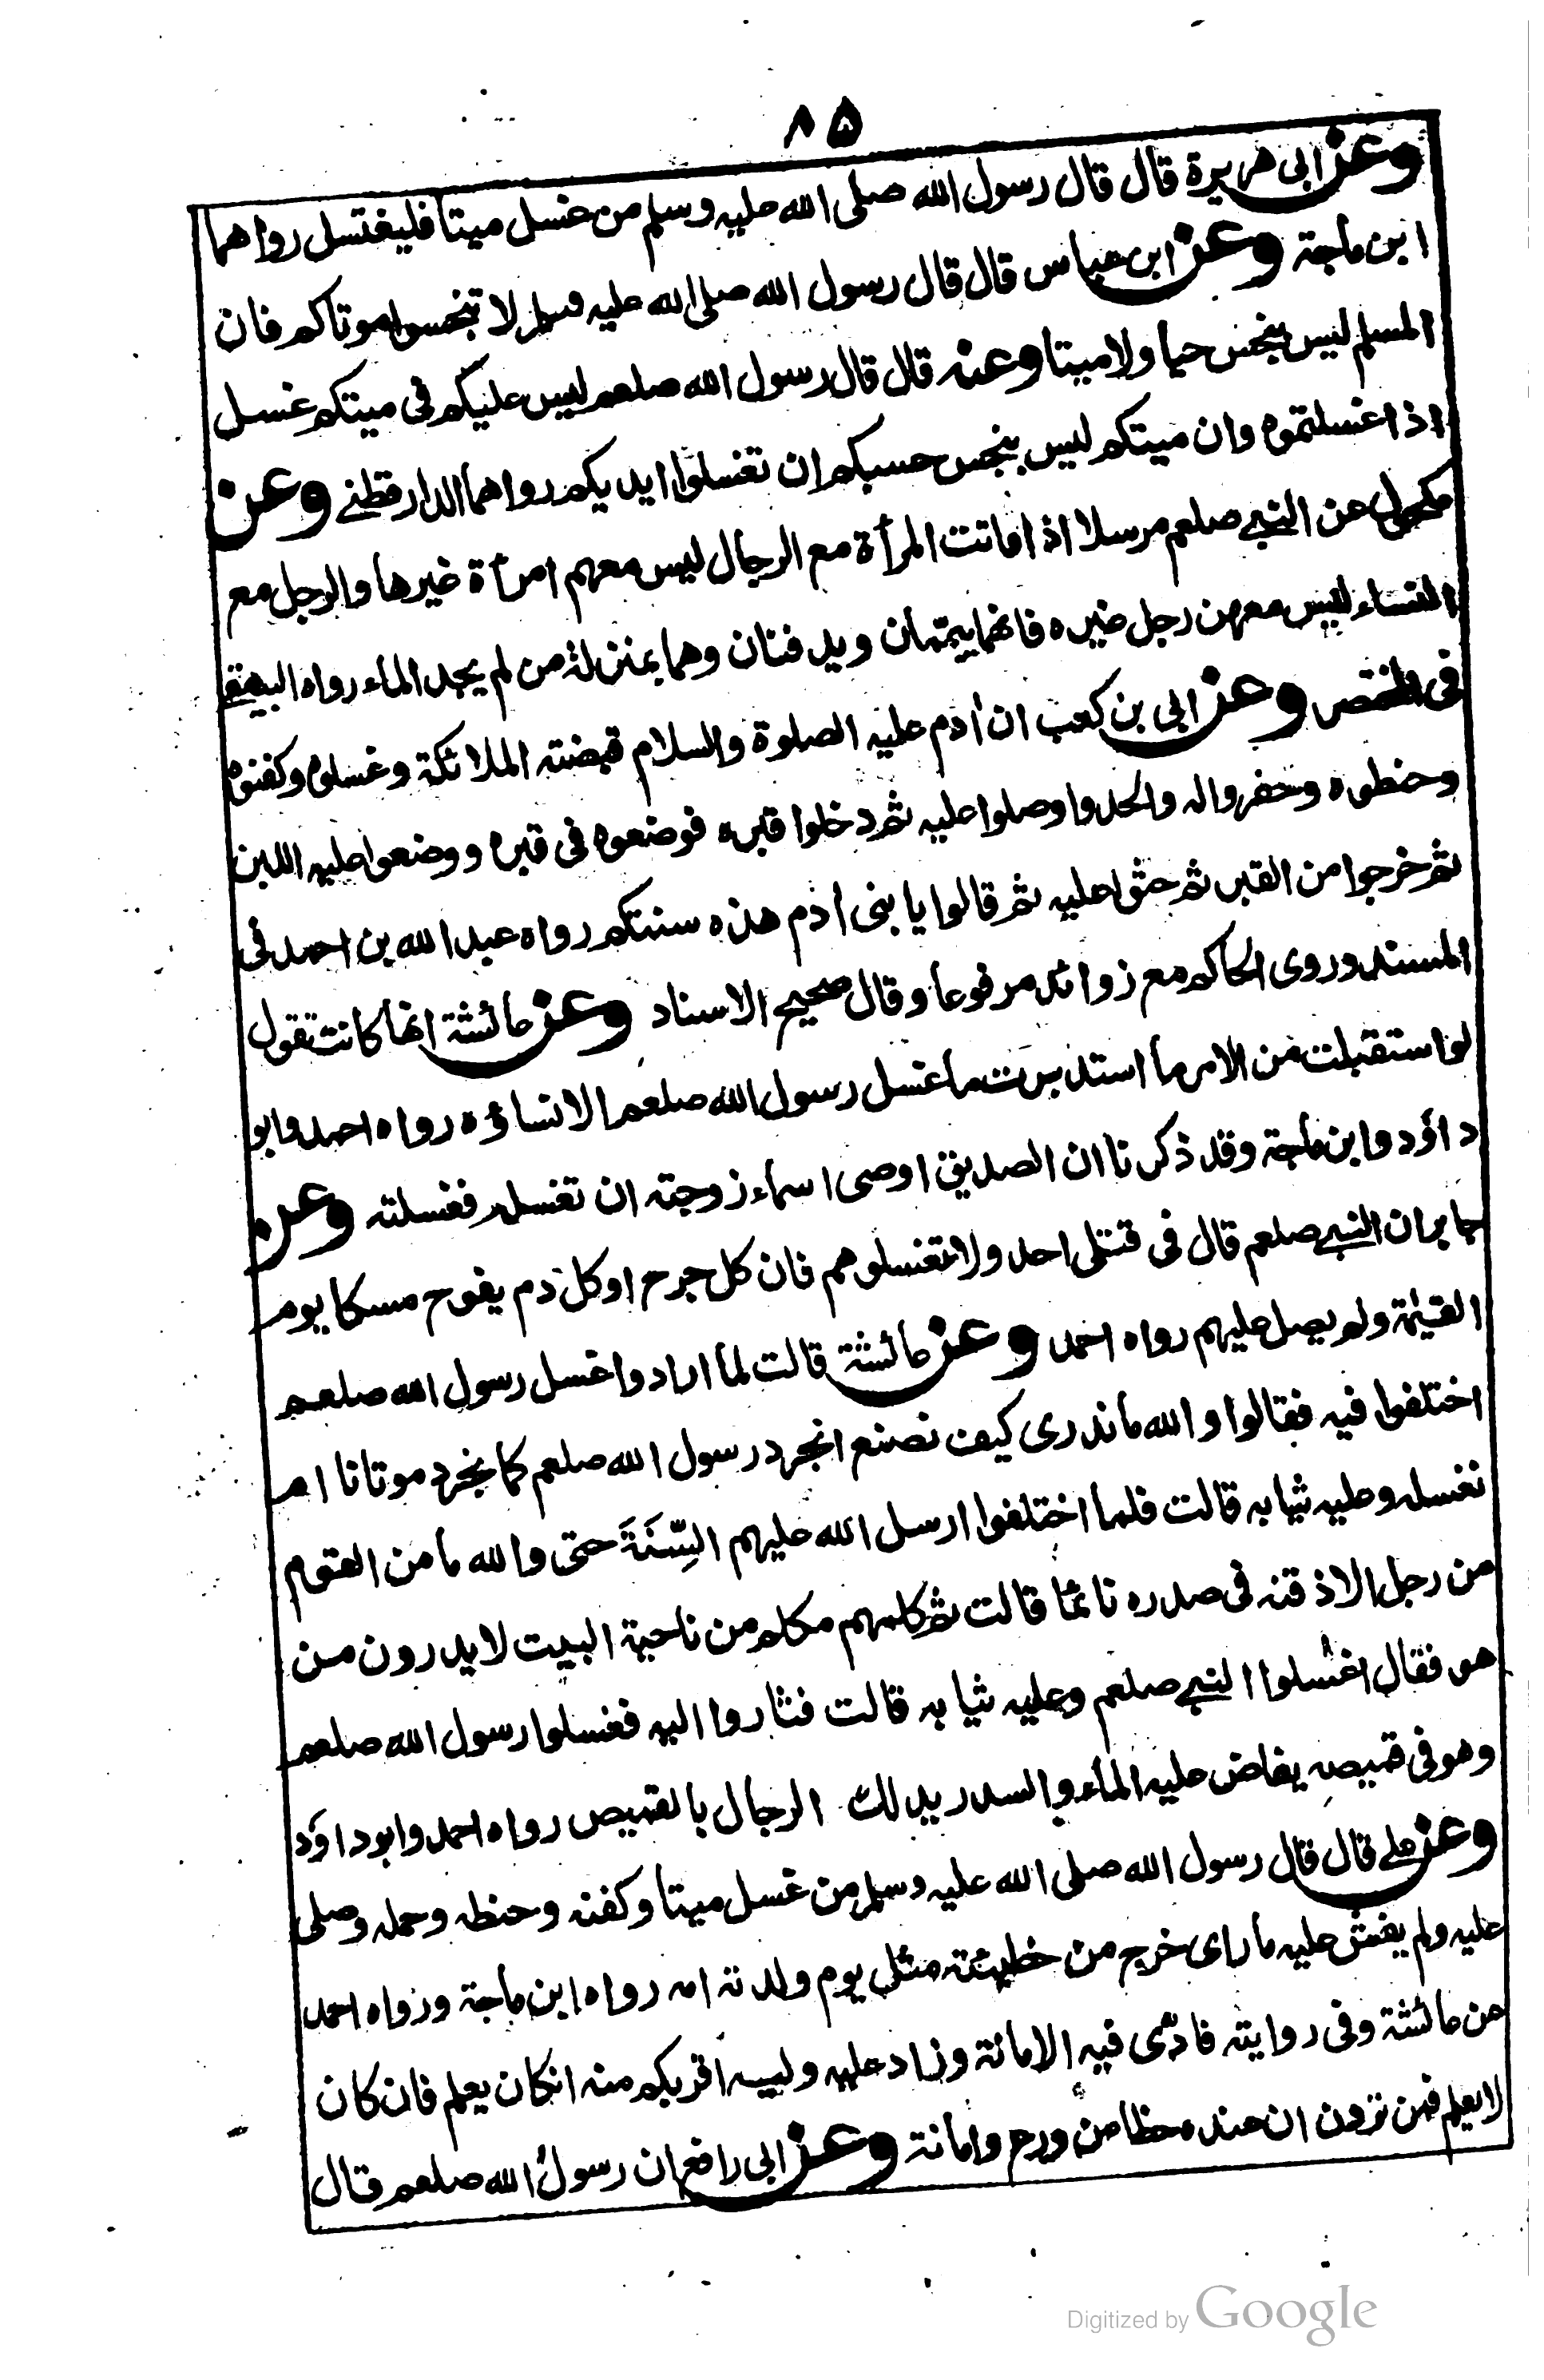 ٨٥
وعن ابى هريرة قال قال رسول الله صلى الله عليه وسلم من غسل ميتا فليغتسل رواهما
ابن ماجة وعن ابن عباس قال قال رسول الله صلى الله عليه وسلم لا تنجسوا موتاكم فان
المسلم ليس بنجس حيا ولا ميتا وعنه قال قال رسول الله صلعم ليس عليكم فى ميتكم غسل
اذا غسلتموه وان ميتكم ليس بنجس حسبكم ان تغسلوا ايديكم رواهما الدارقطنے وعن
مكحول عن النبے صلعم مرسلا اذا ماتت المرأة مع الرجال ليس معهم امرأة غيرها والرجل مع
النساء ليس معهن رجل غيره فانهما ييمّمان ويدفنان وهما بمنزلة من لم يجد الماء رواه البيهقے
فى المختصر وعن ابى بن كعب ان أدم عليه الصلوة والسلام قبضته الملائكة وغسلوه وكفنوه
وحنطوه وحفروا له والحدوا وصلوا عليه ثم دخلوا قبره فوضعوه فى قبره ووضعوا عليه اللبن
ثم خرجوا من القبر ثم حثوا عليه ثم قالوا يا بنى أدم هذه سنتكم رواه عبد الله بن احمد فى
المسند وروى الحاكم مع زوائد مرفوعا وقال صحيح الاسناد وعن عائشة انها كانت تقول
لو استقبلت من الامر ما استدبرت ما غسل رسول الله صلعم الا نساؤه رواه احمد وابو
داؤد وابن ماجة وقد ذكرنا ان الصديق اوصى اسماء زوجته ان تغسله فغسلته وعن
جابر ان النبے صلعم قال فى قتلى احد ولا تغسلوهم فان كل جرح او كل دم يفوح مسكا يوم
القيٰمة ولم يصل عليهم رواه احمد وعن عائشة قالت لما ارادوا غسل رسول الله صلعم
اختلفوا فيه فقالوا والله ما ندرى كيف نصنع انجرد رسول الله صلعم كما نجرد موتانا ام
نغسله وعليه ثيابه قالت فلما اختلفوا ارسل الله عليهم السِّنَةَ حتى والله ما من القوم
من رجل الا ذقنه فى صدره نائما قالت ثم كلمهم مكلم من ناحية البيت لا يدرون من
هو فقال اغسلوا النبے صلعم وعليه ثيابه قالت فثاروا اليه فغسلوا رسول الله صلعم
وهو فى قميصه يفاض عليه الماء والسدر يدلك الرجال بالقميص رواه احمد وابو داؤد
وعن علے قال قال رسول الله صلى الله عليه وسلم من غسل ميتا وكفنه وحنطه وحمله وصلى
عليه ولم يفش عليه ما راى خرج من خطيئته مثل يوم ولدته امه رواه ابن ماجة ورواه احمد
عن عائشة وفى روايته فادّى فيه الامانة وزاد عليه وليه اقربكم منه انكان يعلم فان كان
لا يعلم فمن ترون ان عنده حظا من ورع وامانة وعن ابى رافع ان رسول الله صلعم قال
Digitized by Google